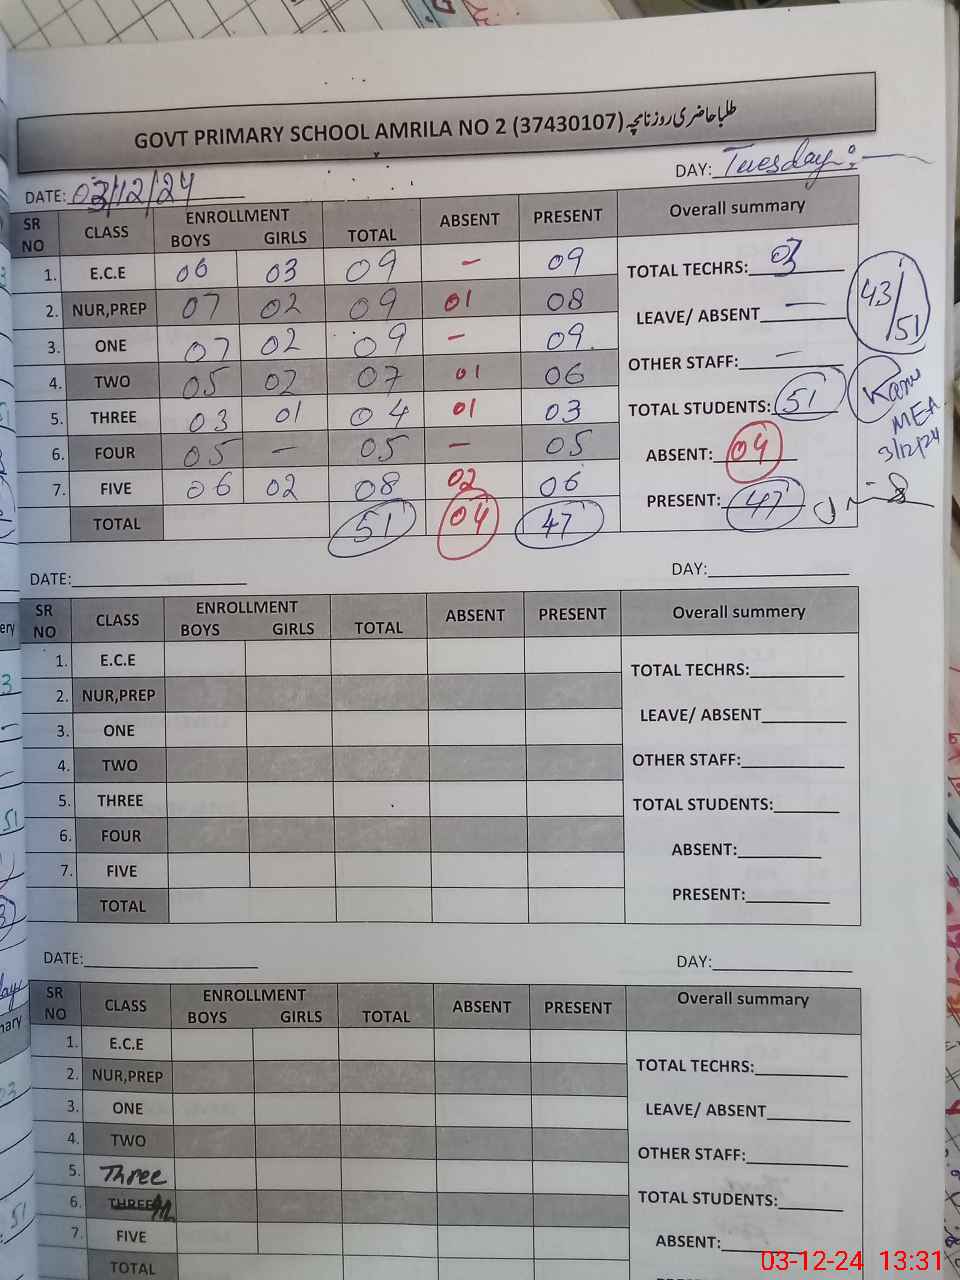 GOVT PRIMARY SCHOOL AMRILA NO 2 (37430107) طلبا حاضری روزنامچہ
DATE: 03/12/24 DAY: Tuesday
SR NO CLASS ENROLLMENT BOYS GIRLS TOTAL ABSENT PRESENT Overall summary
1. E.C.E 06 03 09 - 09 TOTAL TECHRS: 03
2. NUR,PREP 07 02 09 01 08 LEAVE/ ABSENT —
3. ONE 07 02 09 - 09 OTHER STAFF: —
4. TWO 05 02 07 01 06 TOTAL STUDENTS: 51
5. THREE 03 01 04 01 03 ABSENT: 04
6. FOUR 05 - 05 - 05 PRESENT: 47
7. FIVE 06 02 08 02 06
TOTAL 51 04 47
43/51
MEA
3/12/24
DATE: DAY:
SR NO CLASS ENROLLMENT BOYS GIRLS TOTAL ABSENT PRESENT Overall summery
1. E.C.E TOTAL TECHRS:
2. NUR,PREP LEAVE/ ABSENT
3. ONE OTHER STAFF:
4. TWO TOTAL STUDENTS:
5. THREE ABSENT:
6. FOUR PRESENT:
7. FIVE
TOTAL
DATE: DAY:
SR NO CLASS ENROLLMENT BOYS GIRLS TOTAL ABSENT PRESENT Overall summary
1. E.C.E TOTAL TECHRS:
2. NUR,PREP LEAVE/ ABSENT
3. ONE OTHER STAFF:
4. TWO TOTAL STUDENTS:
5. Three ABSENT:
6. THREE
7. FIVE
TOTAL
03-12-24 13:31